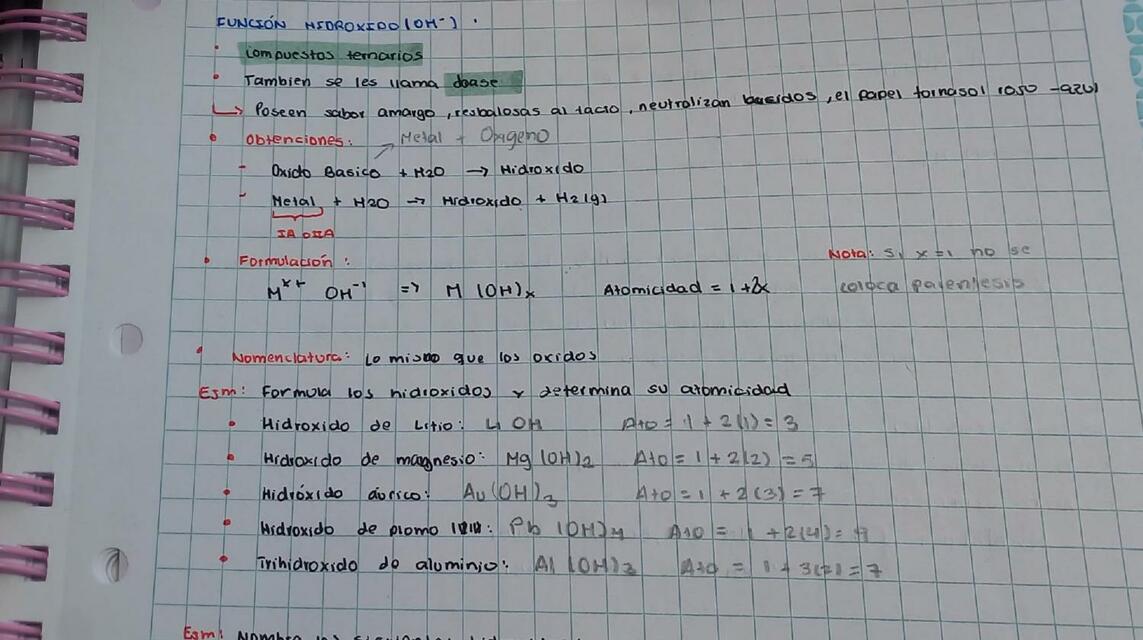 FUNCIÓN HIDROXIDO (OH⁻) .
• Compuestos ternarios
• Tambien se les llama base
↳ Poseen sabor amargo, resbalosas al tacto, neutralizan , el papel tornasol rojo - azul
• Obtenciones: Metal + Oxigeno
- Oxido Basico + H2O → Hidroxido
- Metal + H2O → Hidroxido + H2(g)
IA o IIA
• Formulación: Nota: si x=1 no se
M^x+ OH⁻¹ => M(OH)x Atomicidad = 1+2x coloca parentesis
• Nomenclatura: Lo mismo que los oxidos
Ejm: Formula los hidroxidos y determina su atomicidad
• Hidroxido de Litio: Li OH Ato = 1 + 2(1) = 3
• Hidroxido de magnesio: Mg(OH)2 Ato = 1 + 2(2) = 5
• Hidróxido áurico: Au(OH)3 Ato = 1 + 2(3) = 7
• Hidroxido de plomo : Pb (OH)4 Ato = 1 + 2(4) =
• Trihidroxido de aluminio: Al (OH)3 Ato = = 7
Ejm: Nombra los